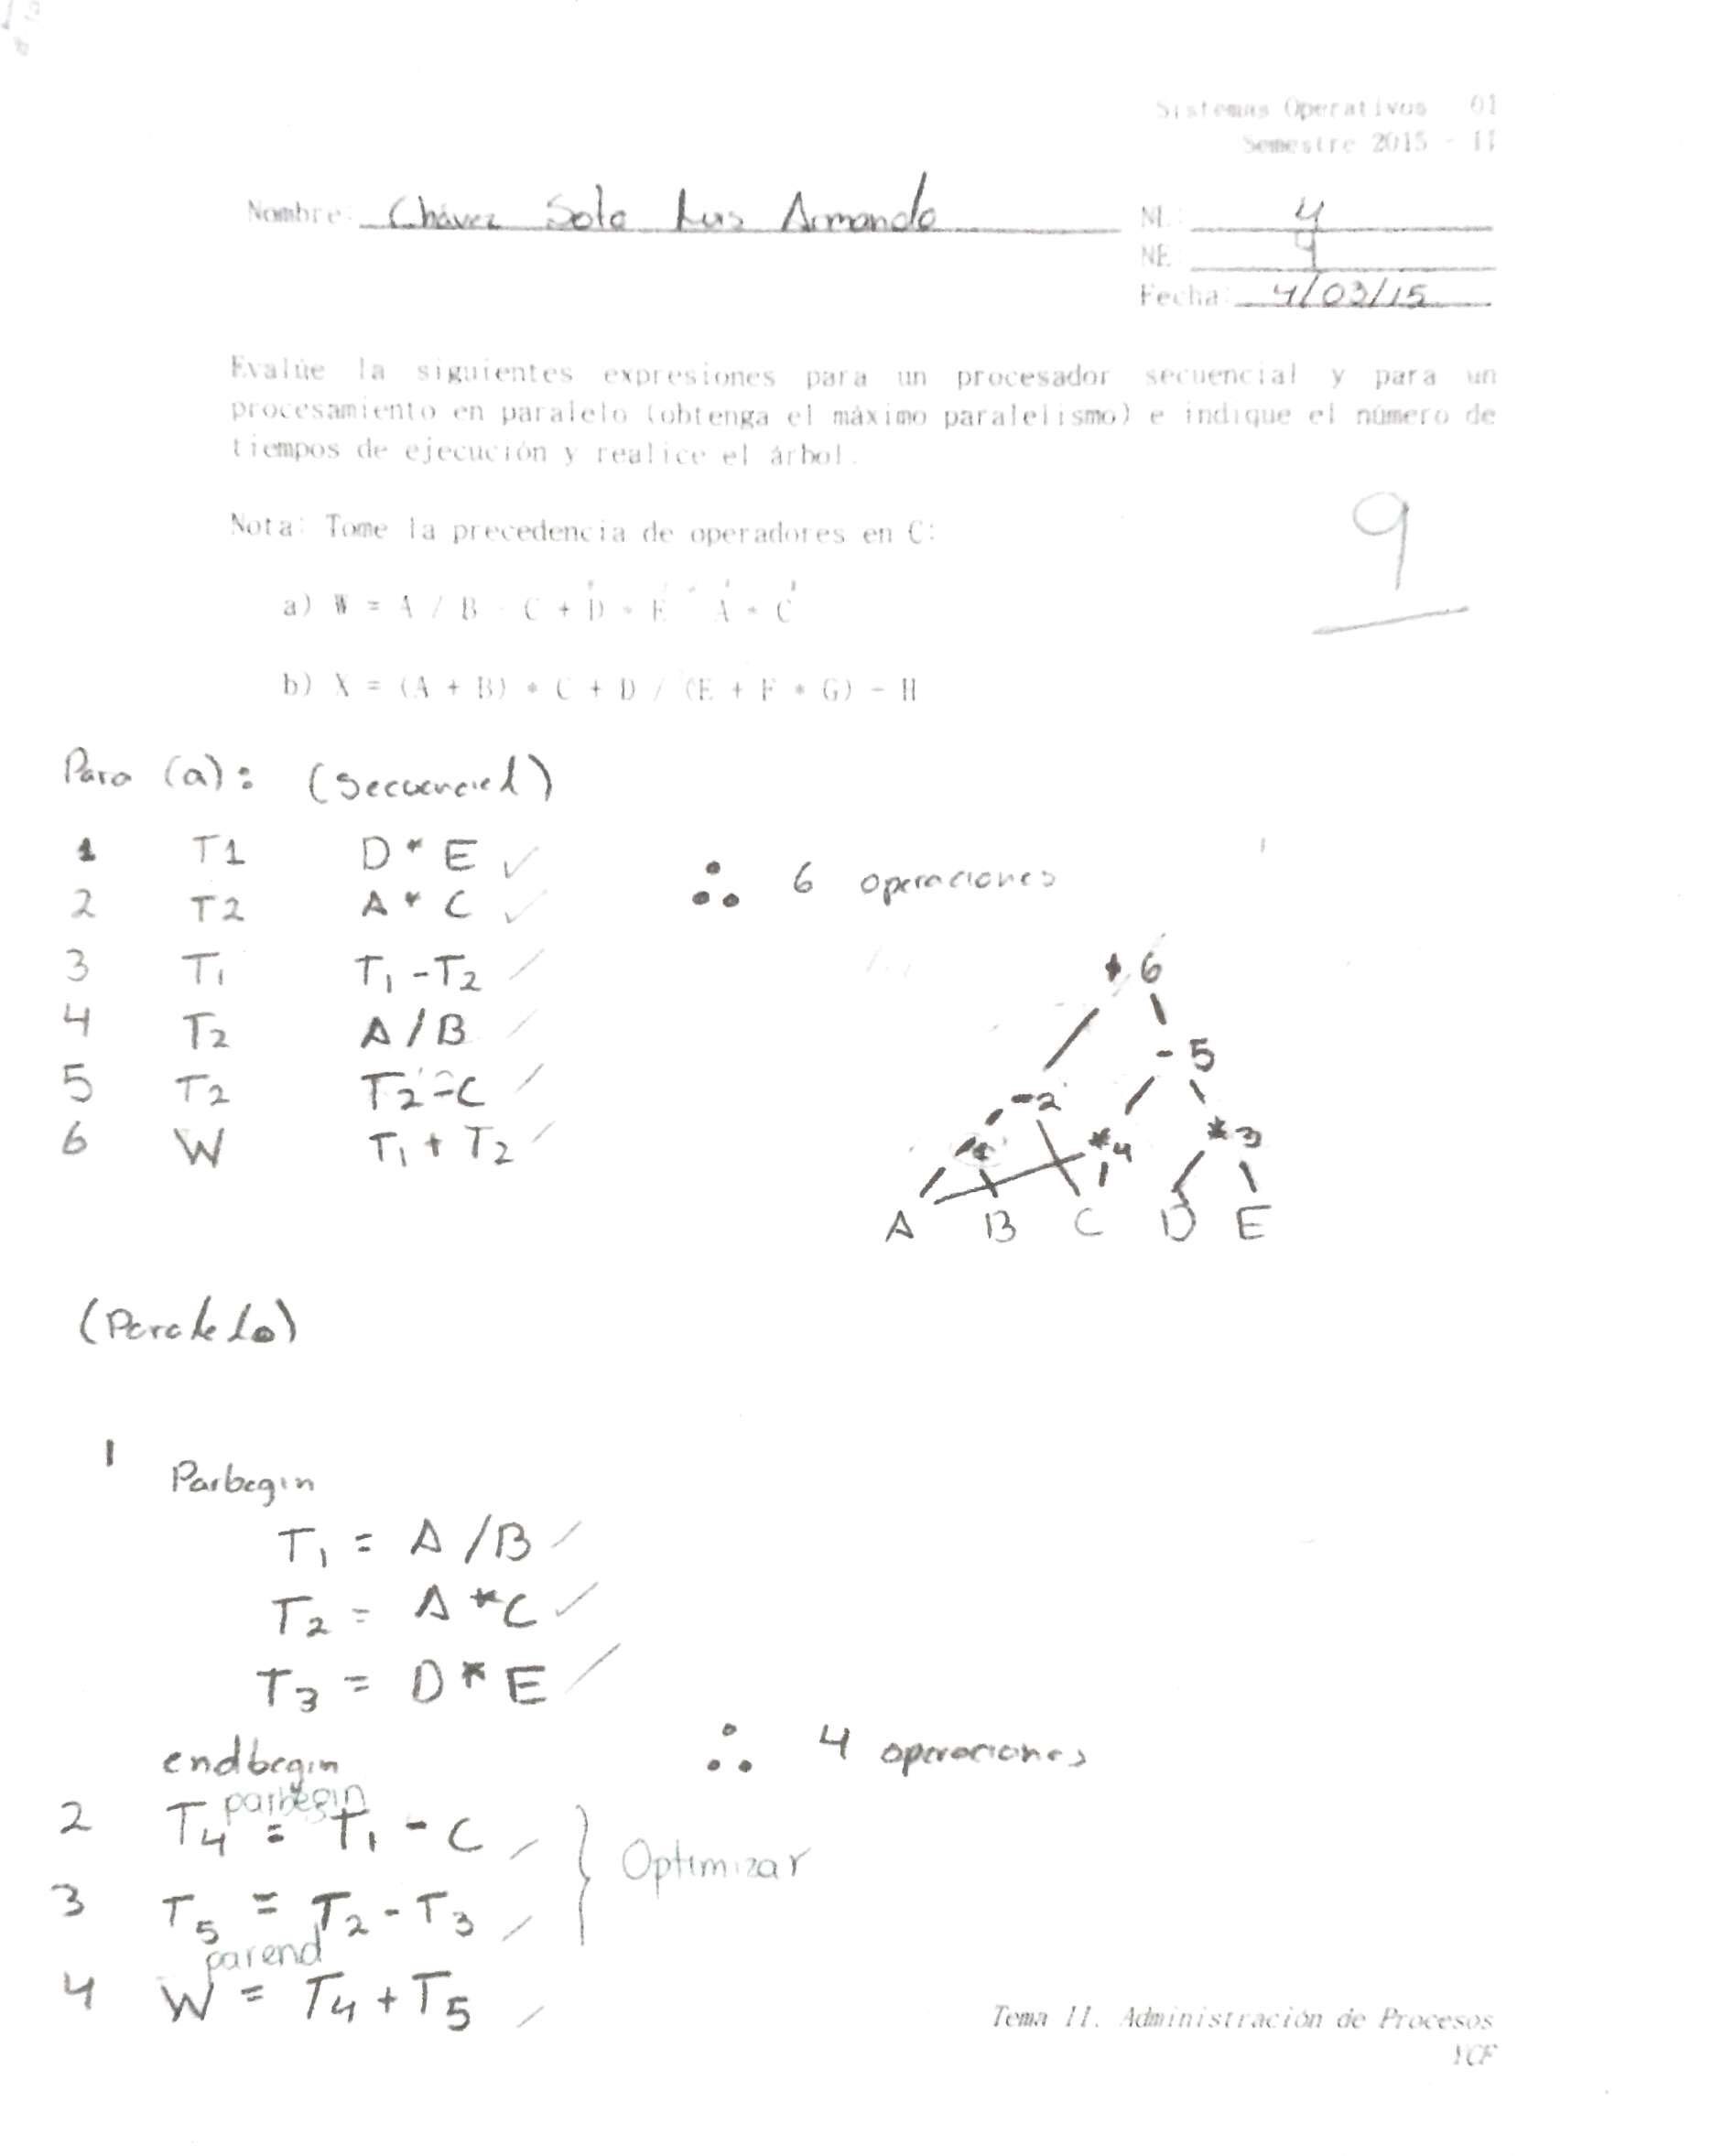 Sistemas Operativos 01
Semestre 2015 - II
Nombre: Chávez Soto Luis Armando
NL: 4
NE: 4
Fecha: 4/03/15
Evalúe la siguientes expresiones para un procesador secuencial y para un
procesamiento en paralelo (obtenga el máximo paralelismo) e indique el número de
tiempos de ejecución y realice el árbol.
Nota: Tome la precedencia de operadores en C:
9
a) W = A / B - C + D * E - A * C
b) X = (A + B) * C + D / (E + F * G) - H
Para (a): (Secuencial)
1 T1 D * E ✓
2 T2 A * C ✓
3 T1 T1 - T2
4 T2 A / B
5 T2 T2 - C
6 W T1 + T2
∴ 6 operaciones
+ 6
- 5
- 2
/ 1 * 4 * 3
A B C D E
(Paralelo)
1 Parbegin
T1 = A / B
T2 = A * C
T3 = D * E
endbegin
∴ 4 operaciones
parbegin
2 T4 = T1 - C
3 T5 = T2 - T3
Optimizar
parend
4 W = T4 + T5
Tema II. Administración de Procesos
YCF